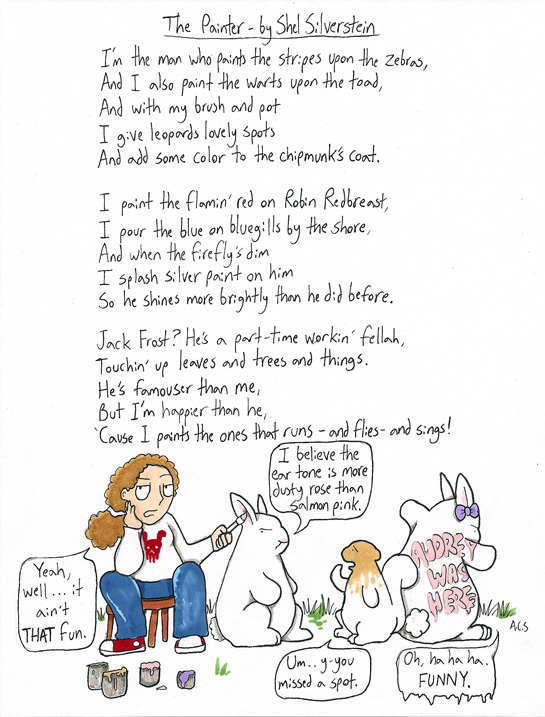 The Painter - by Shel Silverstein
I'm the man who paints the stripes upon the zebras,
And I also paint the warts upon the toad,
And with my brush and pot
I give leopards lovely spots
And add some color to the chipmunk's coat.
I paint the flamin' red on Robin Redbreast,
I pour the blue on bluegills by the shore,
And when the firefly's dim
I splash silver paint on him
So he shines more brightly than he did before.
Jack Frost? He's a part-time workin' fellah,
Touchin' up leaves and trees and things.
He's famouser than me,
But I'm happier than he,
'Cause I paints the ones that runs - and flies - and sings!
I believe the
ear tone is more
dusty rose than
salmon pink.
Yeah,
well... it
ain't
THAT fun.
AUDREY
WAS
HERE
Um.. y-you
missed a spot.
Oh, ha ha ha.
FUNNY.
A.C.S